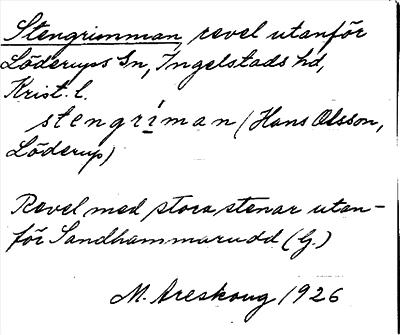 Stengrimman, revel utanför
Löderups sn, Ingelstads hd,
Krist. l.
stengrịman (Hans Olsson,
Löderup)
Revel med stora stenar utan-
för Sandhammarudd (G.)
M. Areskoug 1926